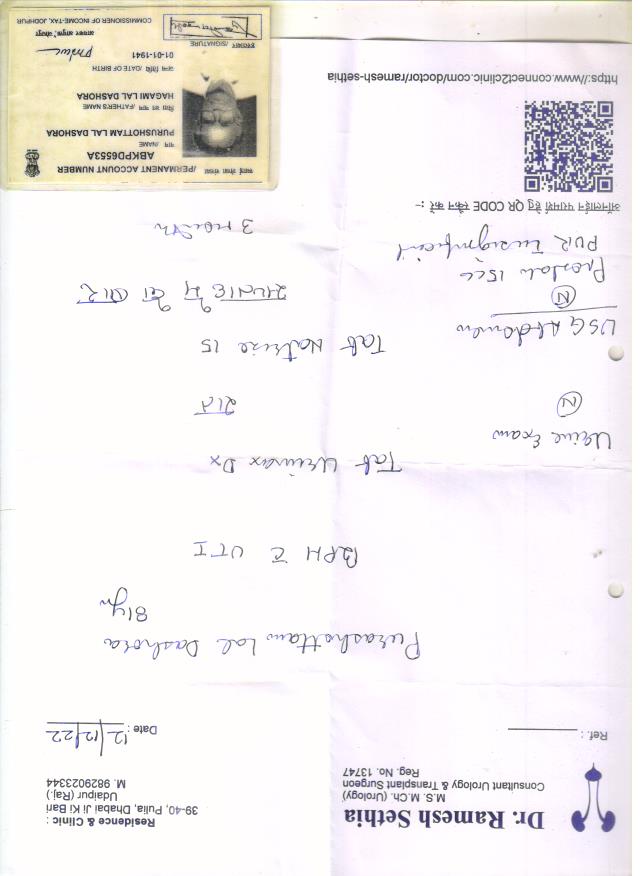 Dr. Ramesh Sethia
M.S. M.Ch. (Urology)
Consultant Urology & Transplant Surgeon
Reg. No. 13747
Residence & Clinic :
39-40, Dhabai Ji Ki Bari
Pulla, Udaipur (Raj.)
M. 9829023344
Ref. :
Date : 12/12/22
Purashottam Lal Dashora
81yr
BPH c̄ UTI
Tab Urimax Dx
Urine Exam
N
USG Abdomen
N
Prostate 15cc
PVR Insignificant
3 month
ऑनलाईन परामर्श हेतु QR CODE स्कैन करें :-
https://www.connect2clinic.com/doctor/ramesh-sethia
स्थाई लेखा संख्या /PERMANENT ACCOUNT NUMBER
ABKPD6553A
नाम /NAME
PURUSHOTTAM LAL DASHORA
पिता का नाम /FATHER'S NAME
HAGAMI LAL DASHORA
जन्म तिथि /DATE OF BIRTH
01-01-1941
हस्ताक्षर /SIGNATURE
आयकर आयुक्त, जोधपुर
COMMISSIONER OF INCOME-TAX, JODHPUR